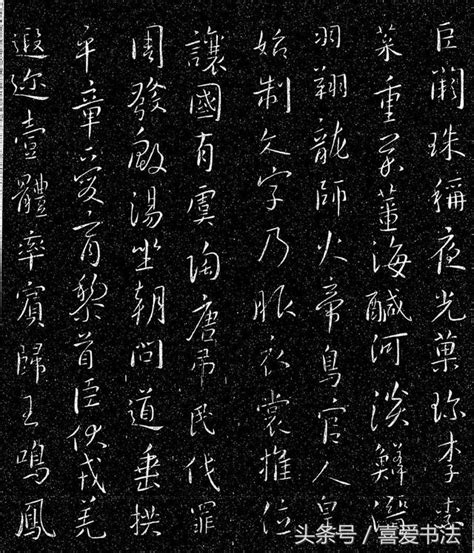 巨闕珠稱夜光菓珍李柰
菜重芥薑海鹹河淡鱗潛
羽翔龍師火帝鳥官人皇
始制文字乃服衣裳推位
讓國有虞陶唐吊民伐罪
周發殷湯坐朝問道垂拱
平章愛育黎首臣伏戎羌
遐邇壹體率賓歸王鳴鳳
头条号 / 喜爱书法